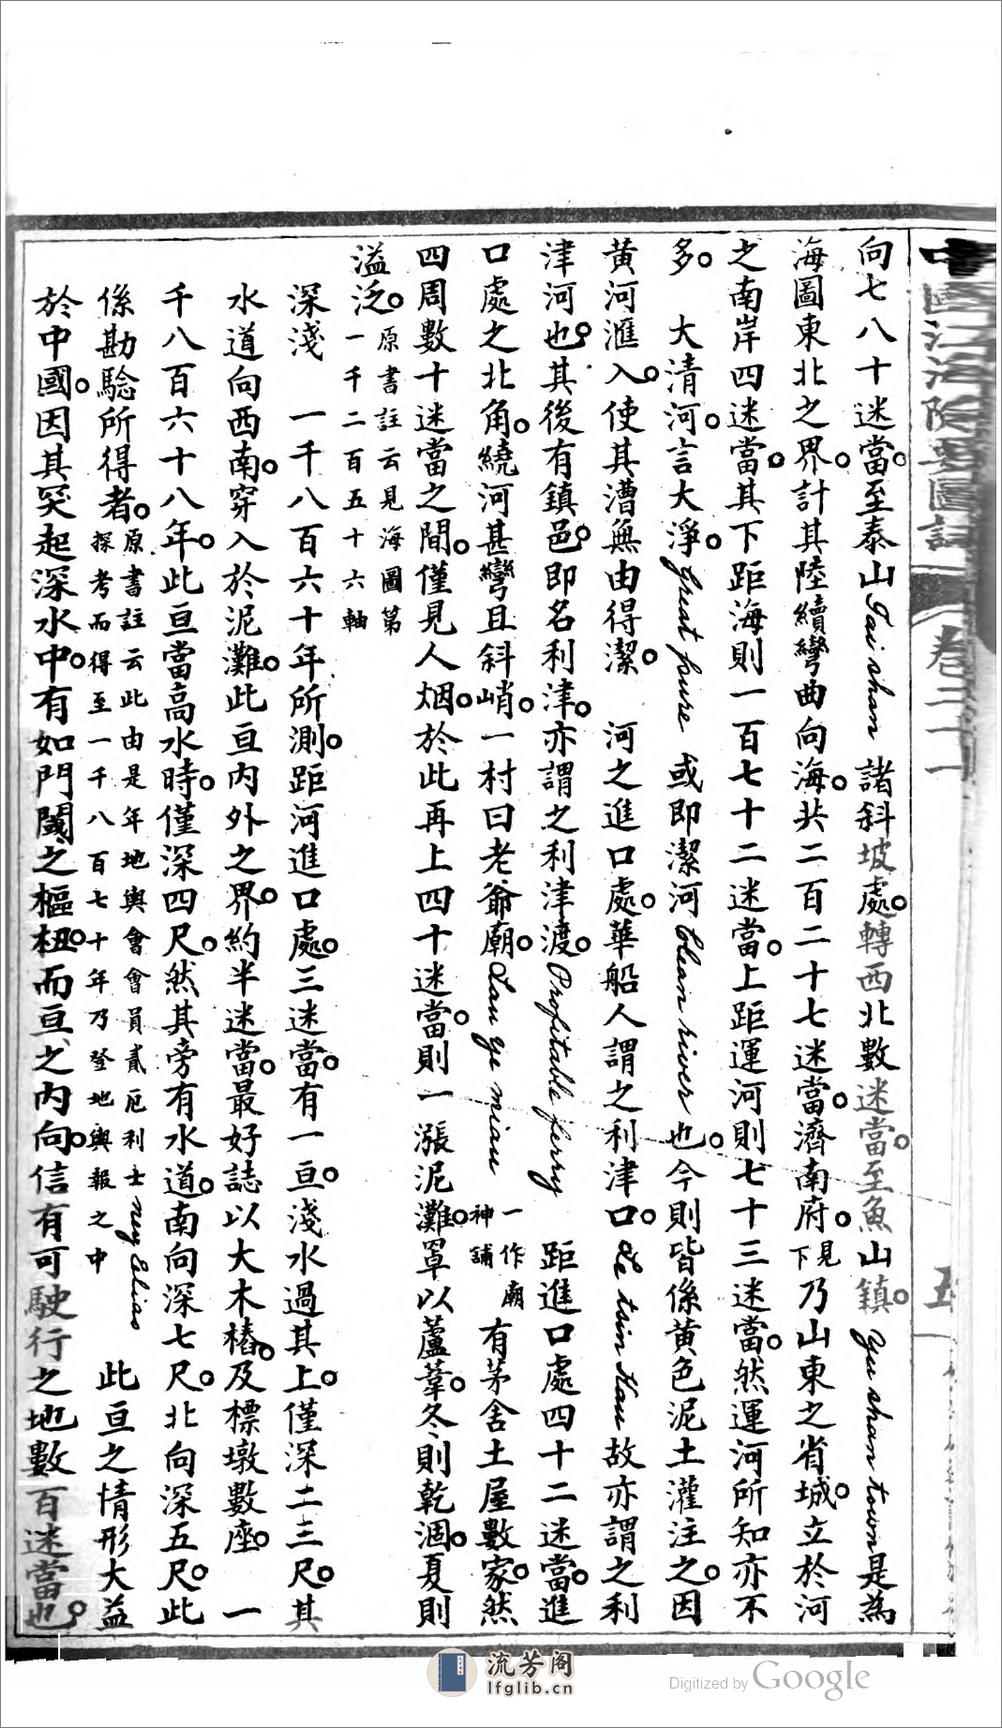 中國江海險要圖誌
卷二十一
五
向七八十迷當至泰山Tai shan 諸斜坡處轉西北數迷當至魚山鎮Yu shan tsun是為
海圖東北之界計其陸續彎曲向海共二百二十七迷當濟南府見下乃山東之省城立於河
之南岸四迷當其下距海則一百七十二迷當上距運河則七十三迷當然運河所知亦不
多 大清河言大淨Great pure 或即潔河Clean river也今則皆係黄色泥土灌注之因
黄河滙入使其漕無由得潔 河之進口處華船人謂之利津口Le tsin kau故亦謂之利
津河也其後有鎮邑即名利津亦謂之利津渡Profitable ferry 距進口處四十二迷當進
口處之北角繞河甚彎且斜峭一村曰老爺廟Lau ye miau一作廟神舖有茅舍土屋數家然
四周數十迷當之間僅見人烟於此再上四十迷當則一漲泥灘罩以蘆葦冬則乾涸夏則
溢泛原書註云見海圖第一千二百五十六軸
深淺 一千八百六十年所測距河進口處三迷當有一亘淺水過其上僅深二三尺其
水道向西南穿入於泥灘此亘内外之界約半迷當最好誌以大木樁及標墩數座 一
千八百六十八年此亘當高水時僅深四尺然其旁有水道南向深七尺北向深五尺此
係勘騐所得者原書註云此由是年地輿會會員貳厄利士ney Elias探考而得至一千八百七十年乃登地輿報之中 此亘之情形大益
於中國因其突起深水中有如門閾之樞杻而亘之内向信有可駛行之地數百迷當也
流芳阁
lfglib.cn
Digitized by Google